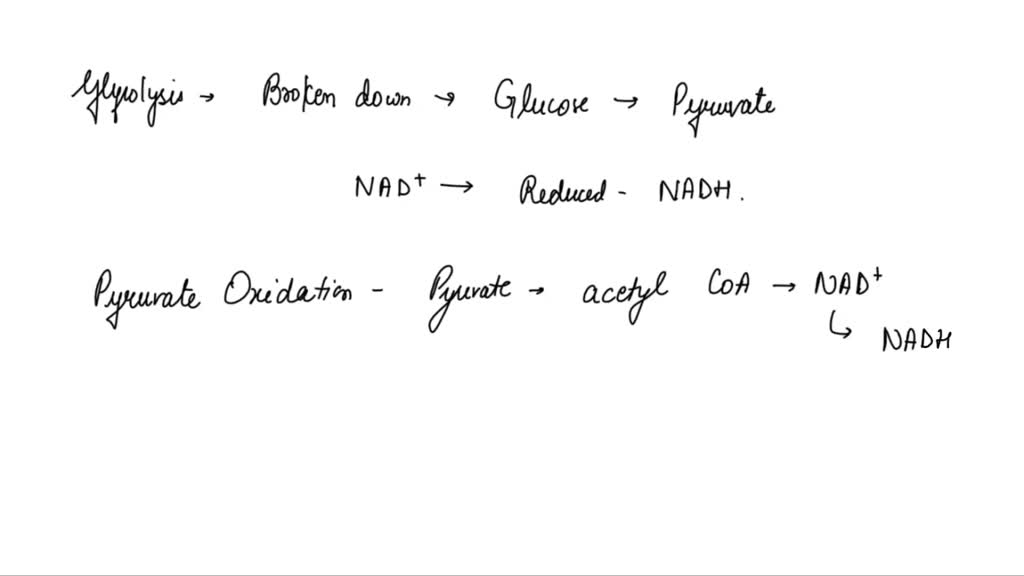 Glycolysis → Broken down → Glucose → Pyruvate
NAD⁺ → Reduced - NADH.
Pyruvate Oxidation - Pyruvate → acetyl CoA → NAD⁺
↳ NADH